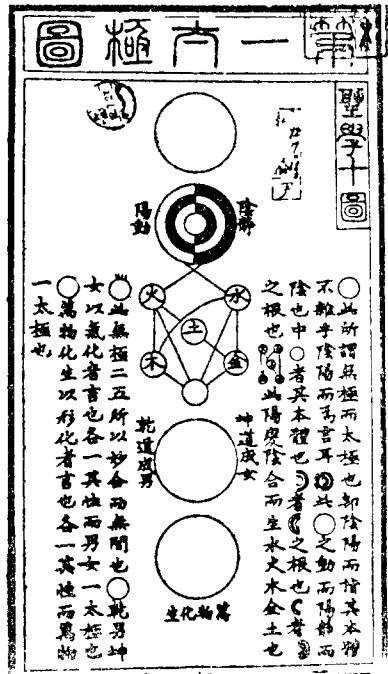 第一太極圖
聖學十圖
陰靜
陽動
火
水
土
木
金
坤道成女
乾道成男
萬物化生
○此所謂無極而太極也卽陰陽而指其本體
不雜乎陰陽而爲言耳 此○之動而陽靜而
陰也中○者其本體也 者 之根也 者
之根也 此陽變陰合而生水火木金土也
此無極二五所以妙合而無間也○乾男坤
女以氣化者言也各一其性而男女一太極也
○萬物化生以形化者言也各一其性而萬物
一太極也